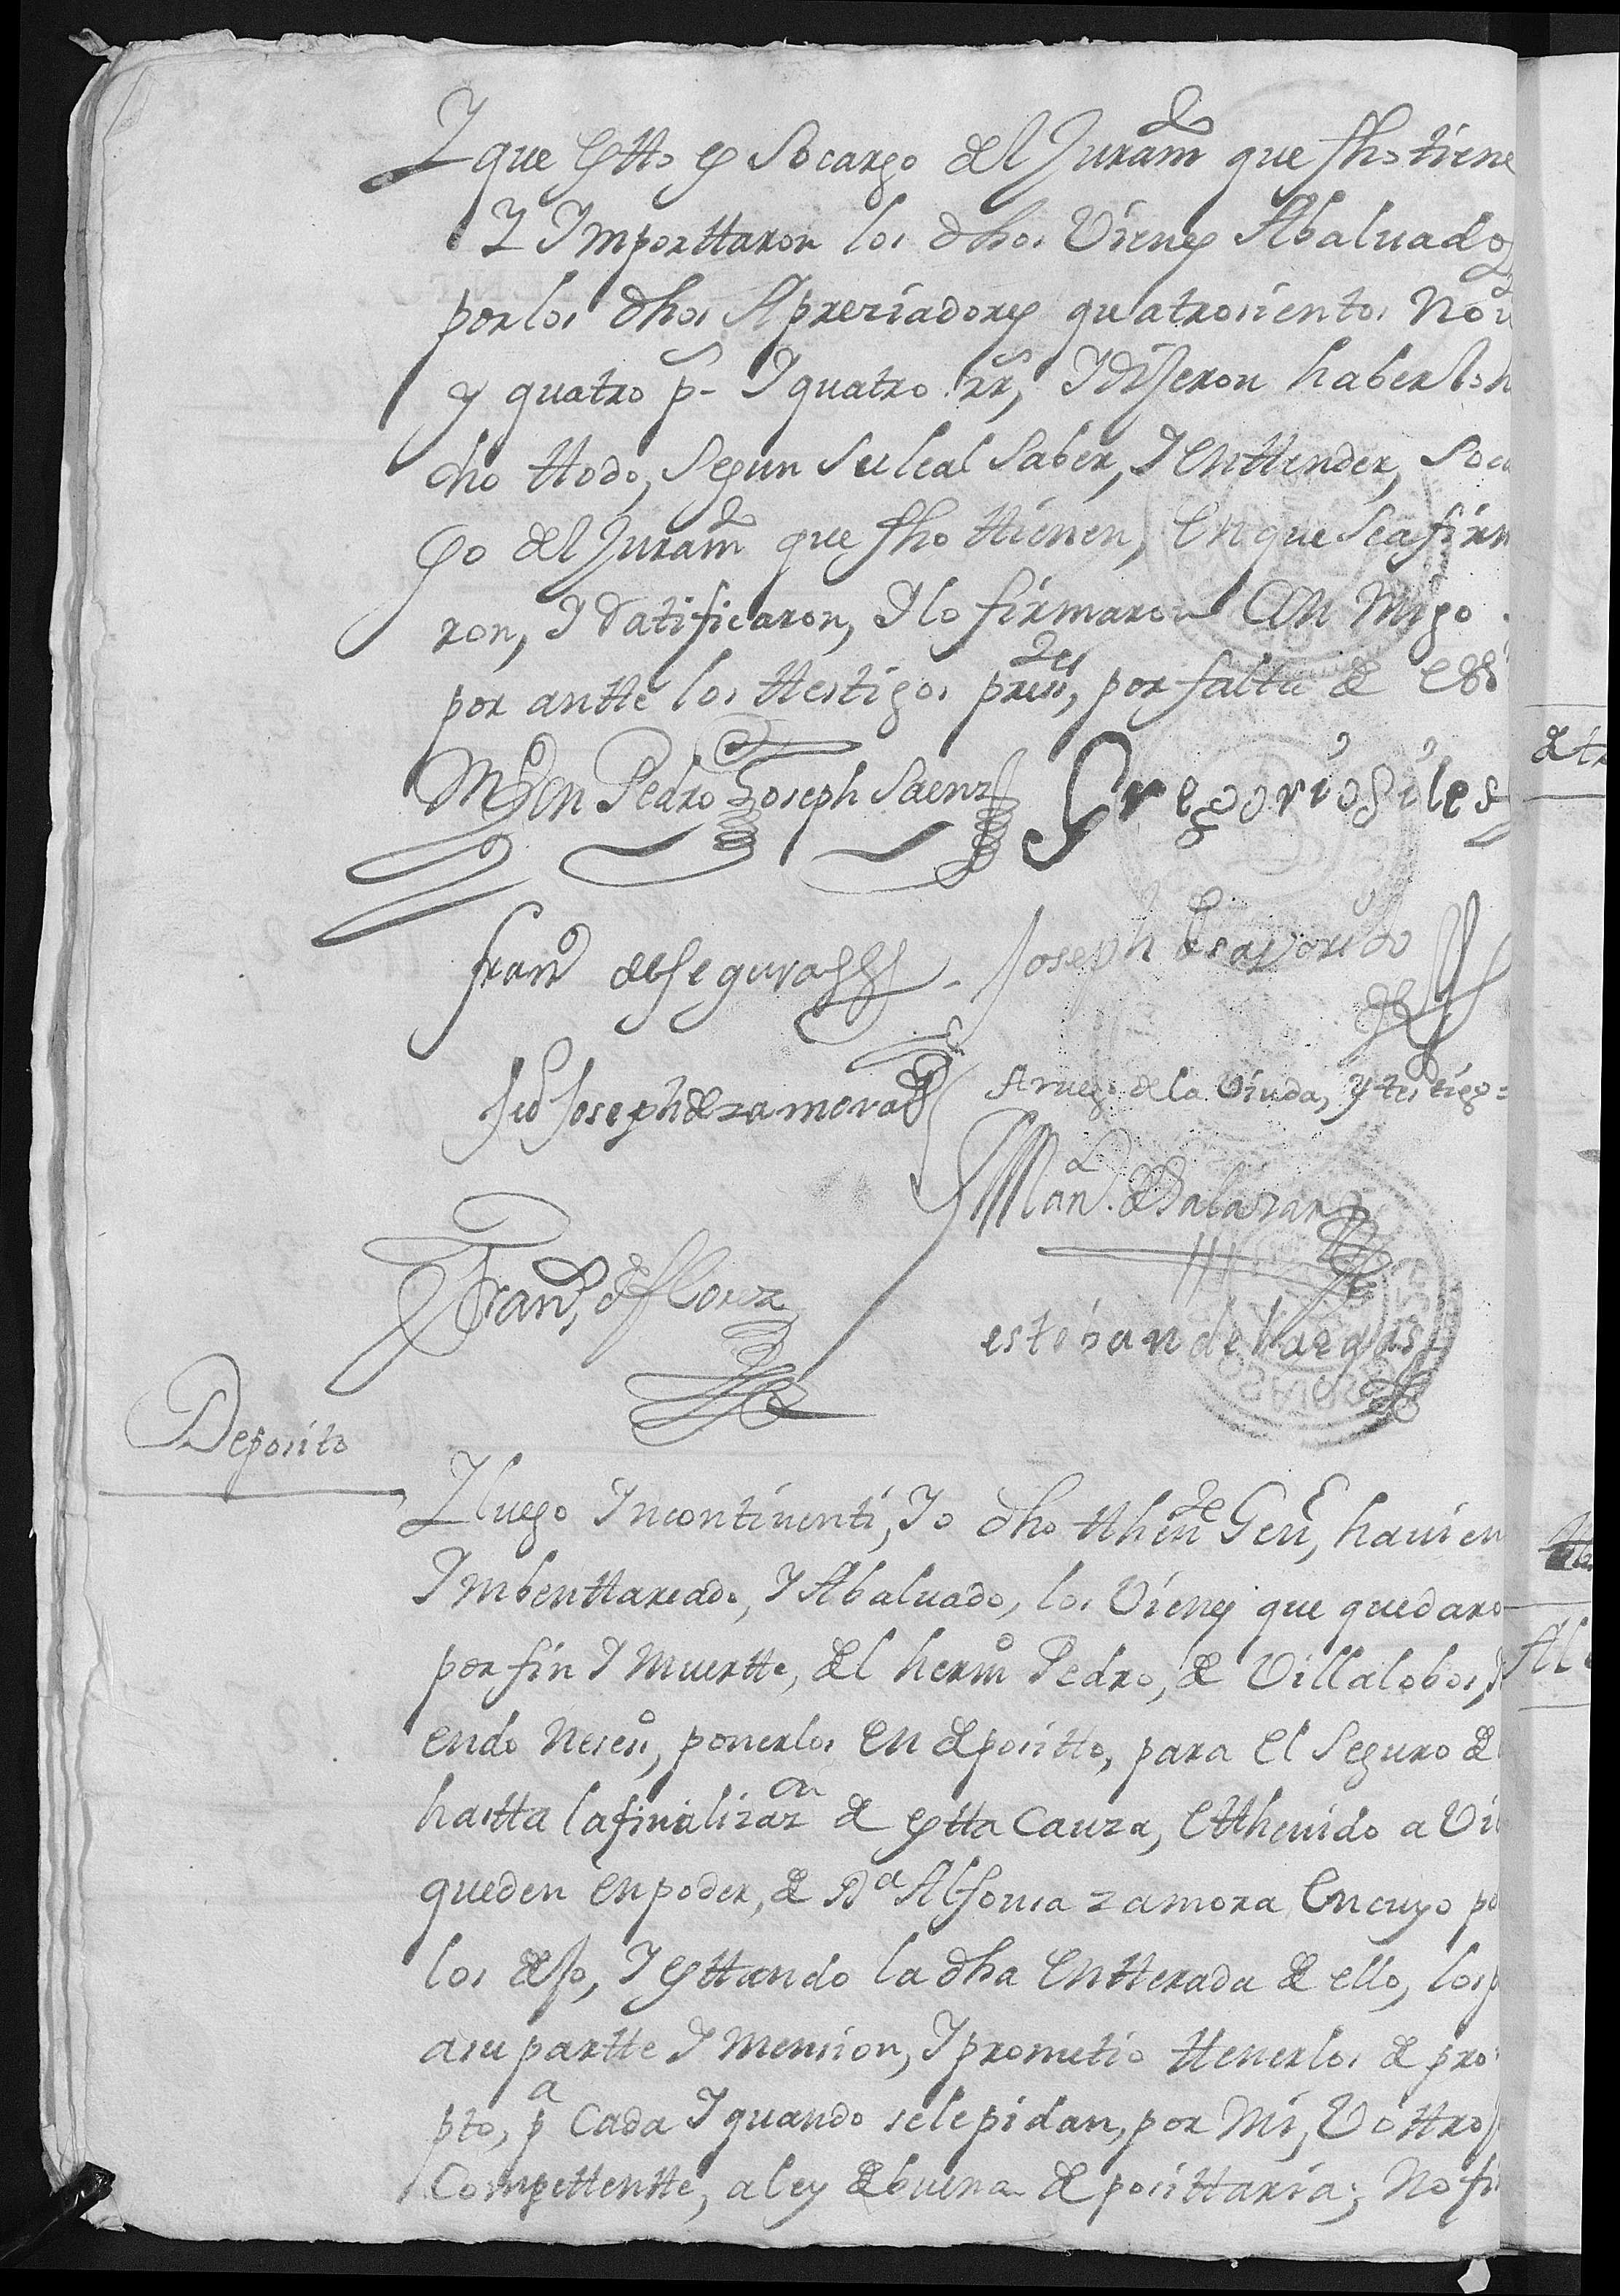 Y que estto es Socargo del Juramdo que fho tiene
Y Ymporttaron los dhos Vienes Abaluados
por los dhos Apreziadores quatrosientos Nov
y quatro ps Y quatro rrs, Y diJeron haberlo h
cho ttodo, Segun Su leal Saber, Y enttender, Soca
go del Juramdo que fho ttienen, en que Se afirm
ron, Y Ratificaron, Y lo firmaron Con Migo
por antte los ttestigos presstes, por falta de
Mrn Pedro Joseph Saenz Gregorio Giles
Franco de Segura Joseph
Juo Joseph de zamora A ruego de la Viuda, y testigo =
Manl de Salazar
Franco de florez
esteban de bargas
Deposito
Y luego Yncontinenti, Yo dho tthente Genl, havien
Ymbenttareado, Y Abaluado, los Vienes que quedaro
por fin Y Muertte, del hermo Pedro, de Villalobos,
endo Neseso, ponerlos en depositto, para el Seguro de
hastta la finalizazon de estta Cauza, e tthenido a Vi
queden en poder, de Da Alfonsa zamora en cuyo po
los Y esttando la dha entterada de ello, los
a su partte Y Mension, Y prometio ttenerlos de pro
pto, pa Cada Y quando se le pidan, por Mi, V ottro
Compettentte, a ley de buena deposittaria; No fi